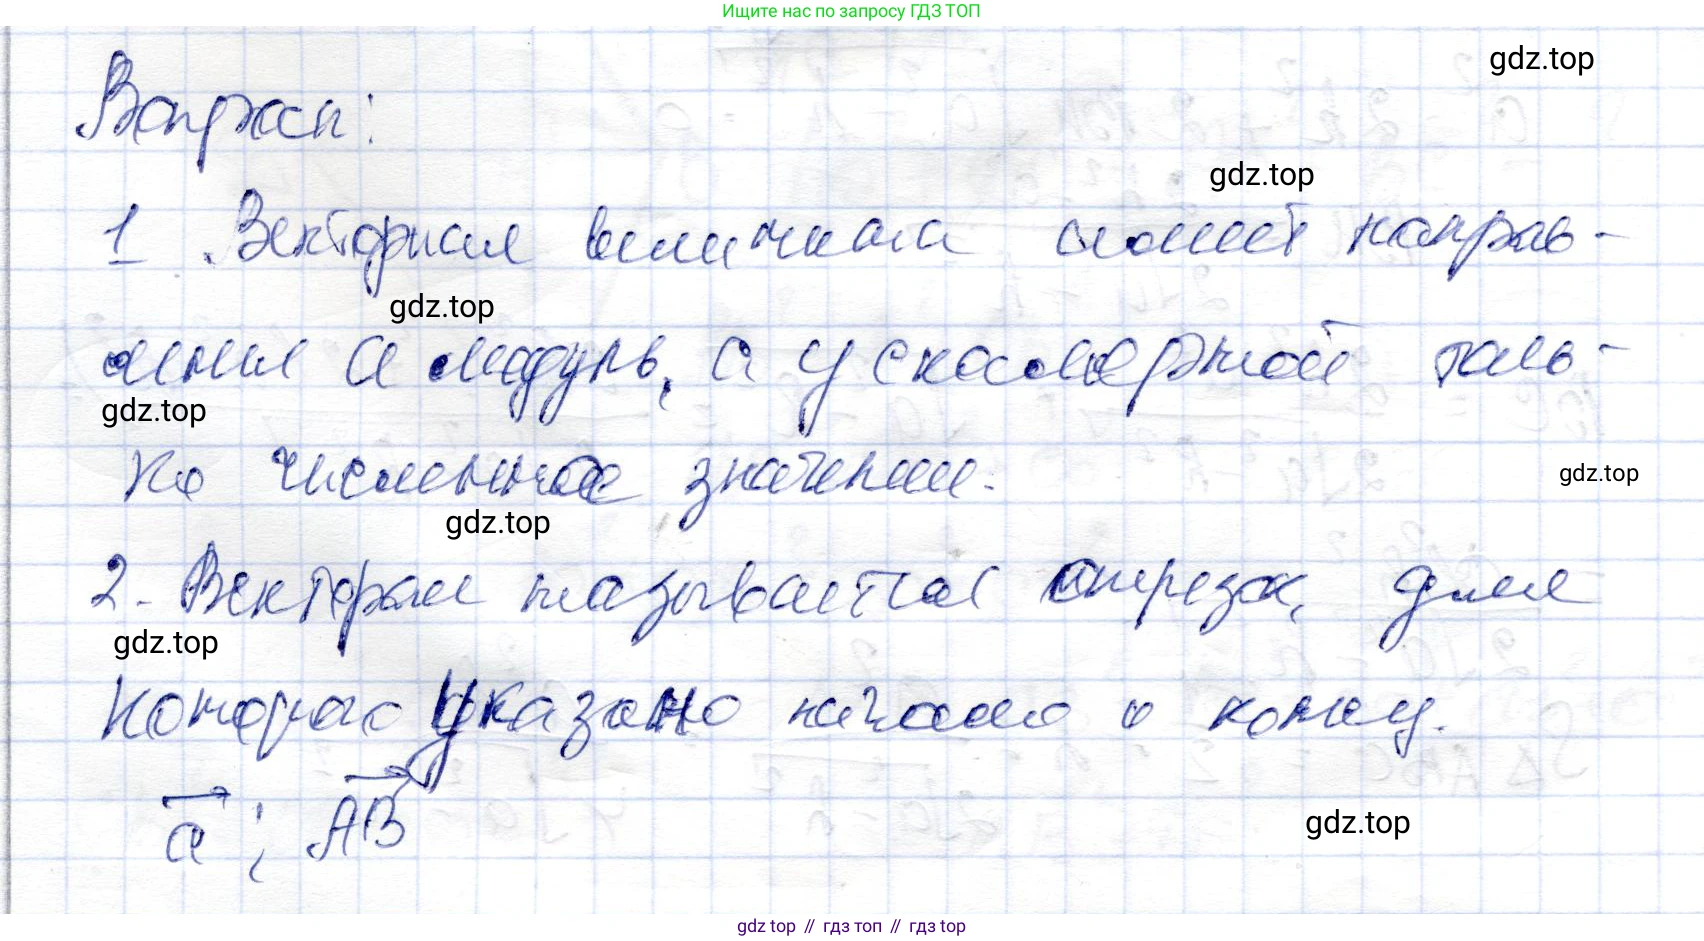 Ищите нас по запросу ГДЗ ТОП
gdz.top
Вопросы:
gdz.top
1. Векторная величина имеет направ-
gdz.top
ления и модуль, а у скалярной толь-
gdz.top
ко численное значение.
gdz.top
gdz.top
2. Вектором называется отрезок, для
gdz.top
которого указано начало и конец.
a⃗; AB⃗
gdz.top
gdz top // гдз топ // гдз top